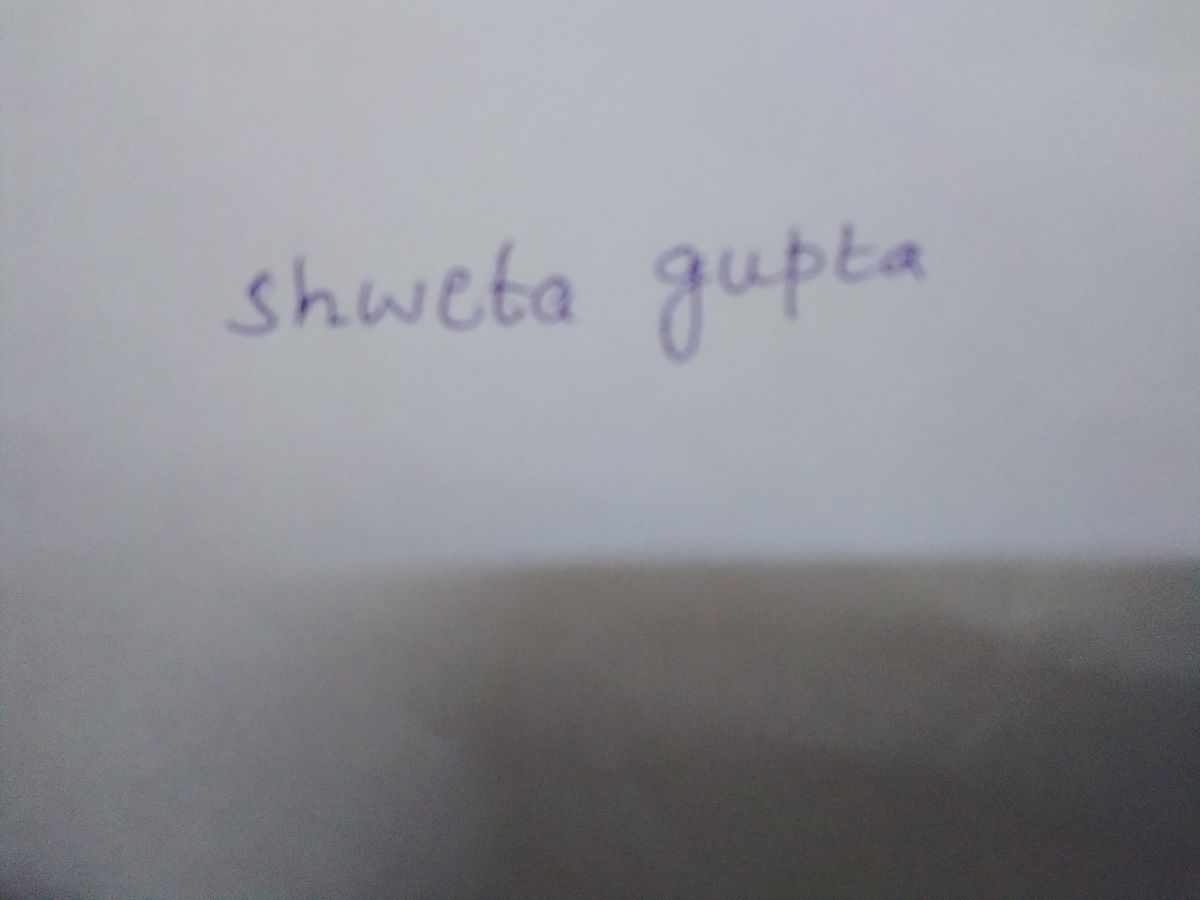 shweta gupta